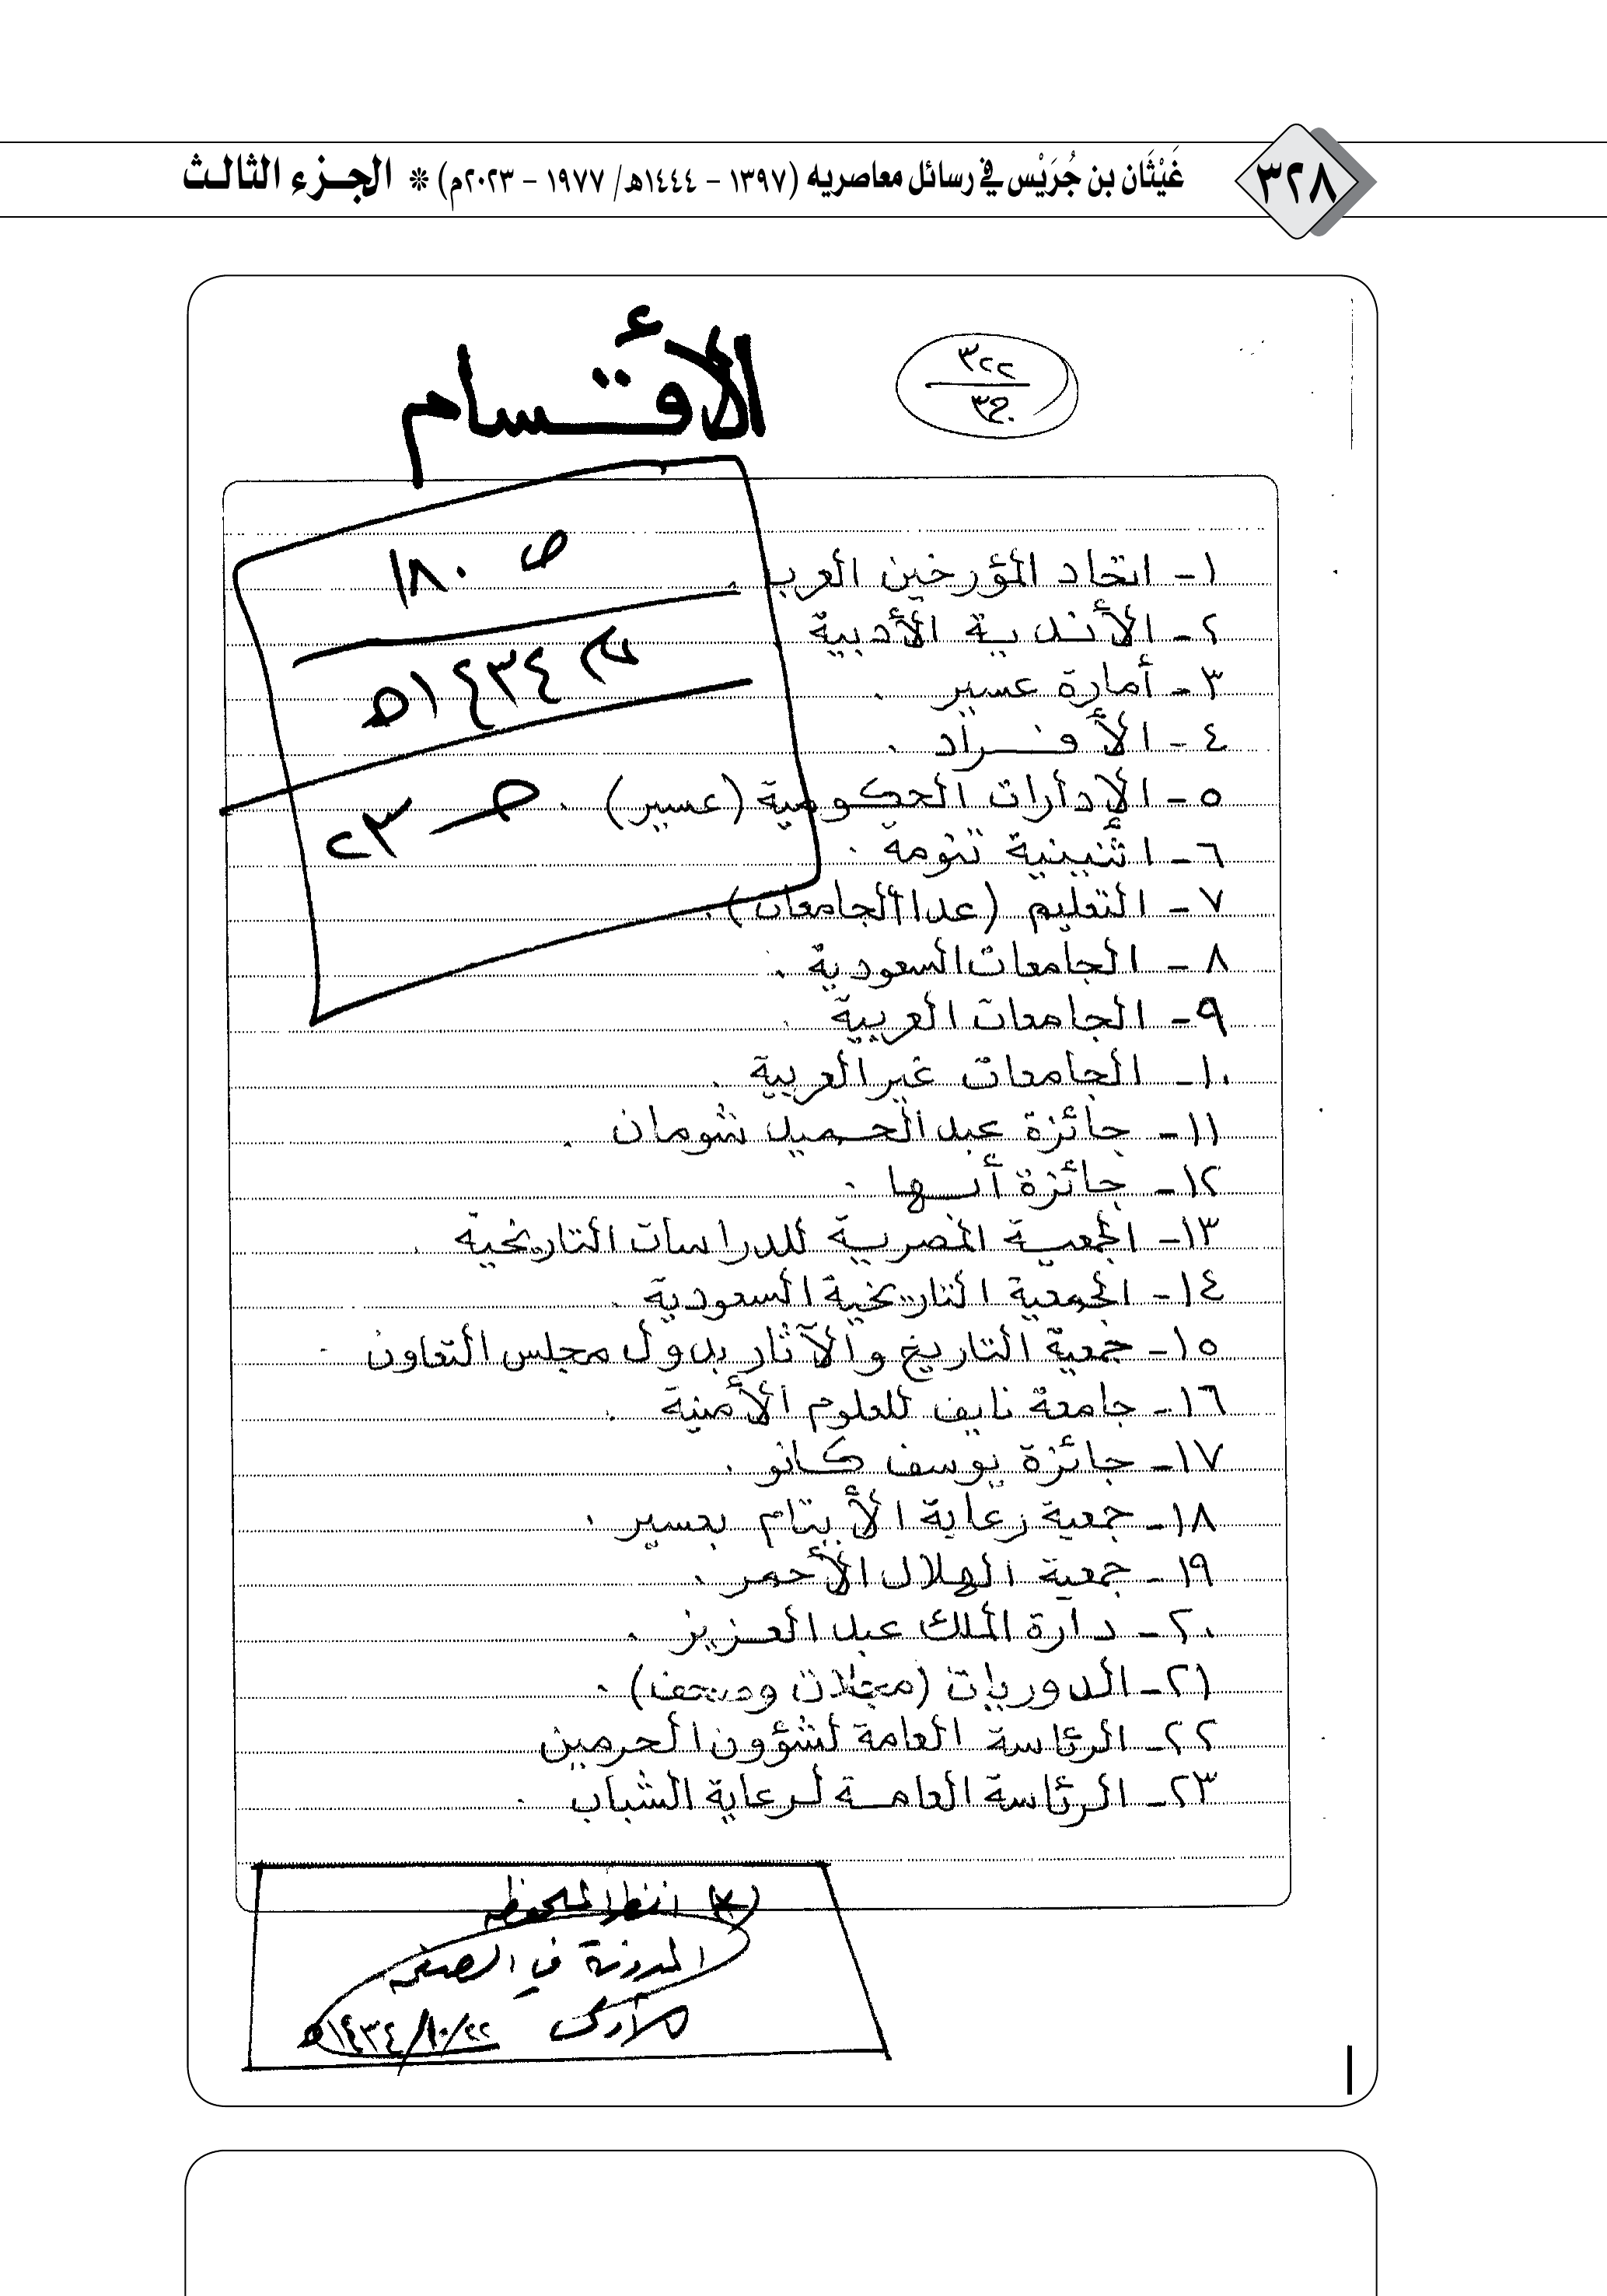 ٣٢٨
غَيْثَان بن جُرَيْس في رسائل معاصريه (١٣٩٧ - ١٤٤٤هـ/ ١٩٧٧ - ٢٠٢٣م) * الجزء الثالث
٣٢٢
ج٣
الأقسام
ص ١٨٠
عام ١٤٣٤هـ
٢٣
١- اتحاد المؤرخين العرب .
٢- الأندية الأدبية .
٣- أمارة عسير .
٤- الأفراد .
٥- الإدارات الحكومية (عسير) .
٦- اثنينية تنومة .
٧- التعليم (عدا الجامعات) .
٨- الجامعات السعودية .
٩- الجامعات العربية .
١٠- الجامعات غير العربية .
١١- جائزة عبد الحميد شومان .
١٢- جائزة أبها .
١٣- الجمعية المصرية للدراسات التاريخية .
١٤- الجمعية التاريخية السعودية .
١٥- جمعية التاريخ والآثار بدول مجلس التعاون .
١٦- جامعة نايف للعلوم الأمنية .
١٧- جائزة يوسف كانو .
١٨- جمعية رعاية الأيتام بعسير .
١٩- جمعية الهلال الأحمر .
٢٠- دارة الملك عبد العزيز .
٢١- الدوريات (مجلات وصحف) .
٢٢- الرئاسة العامة لشؤون الحرمين
٢٣- الرئاسة العامة لرعاية الشباب .
(*) انظر الملحوظة
المدونة في الصفحة
٢٢/١٠/١٤٣٤هـ